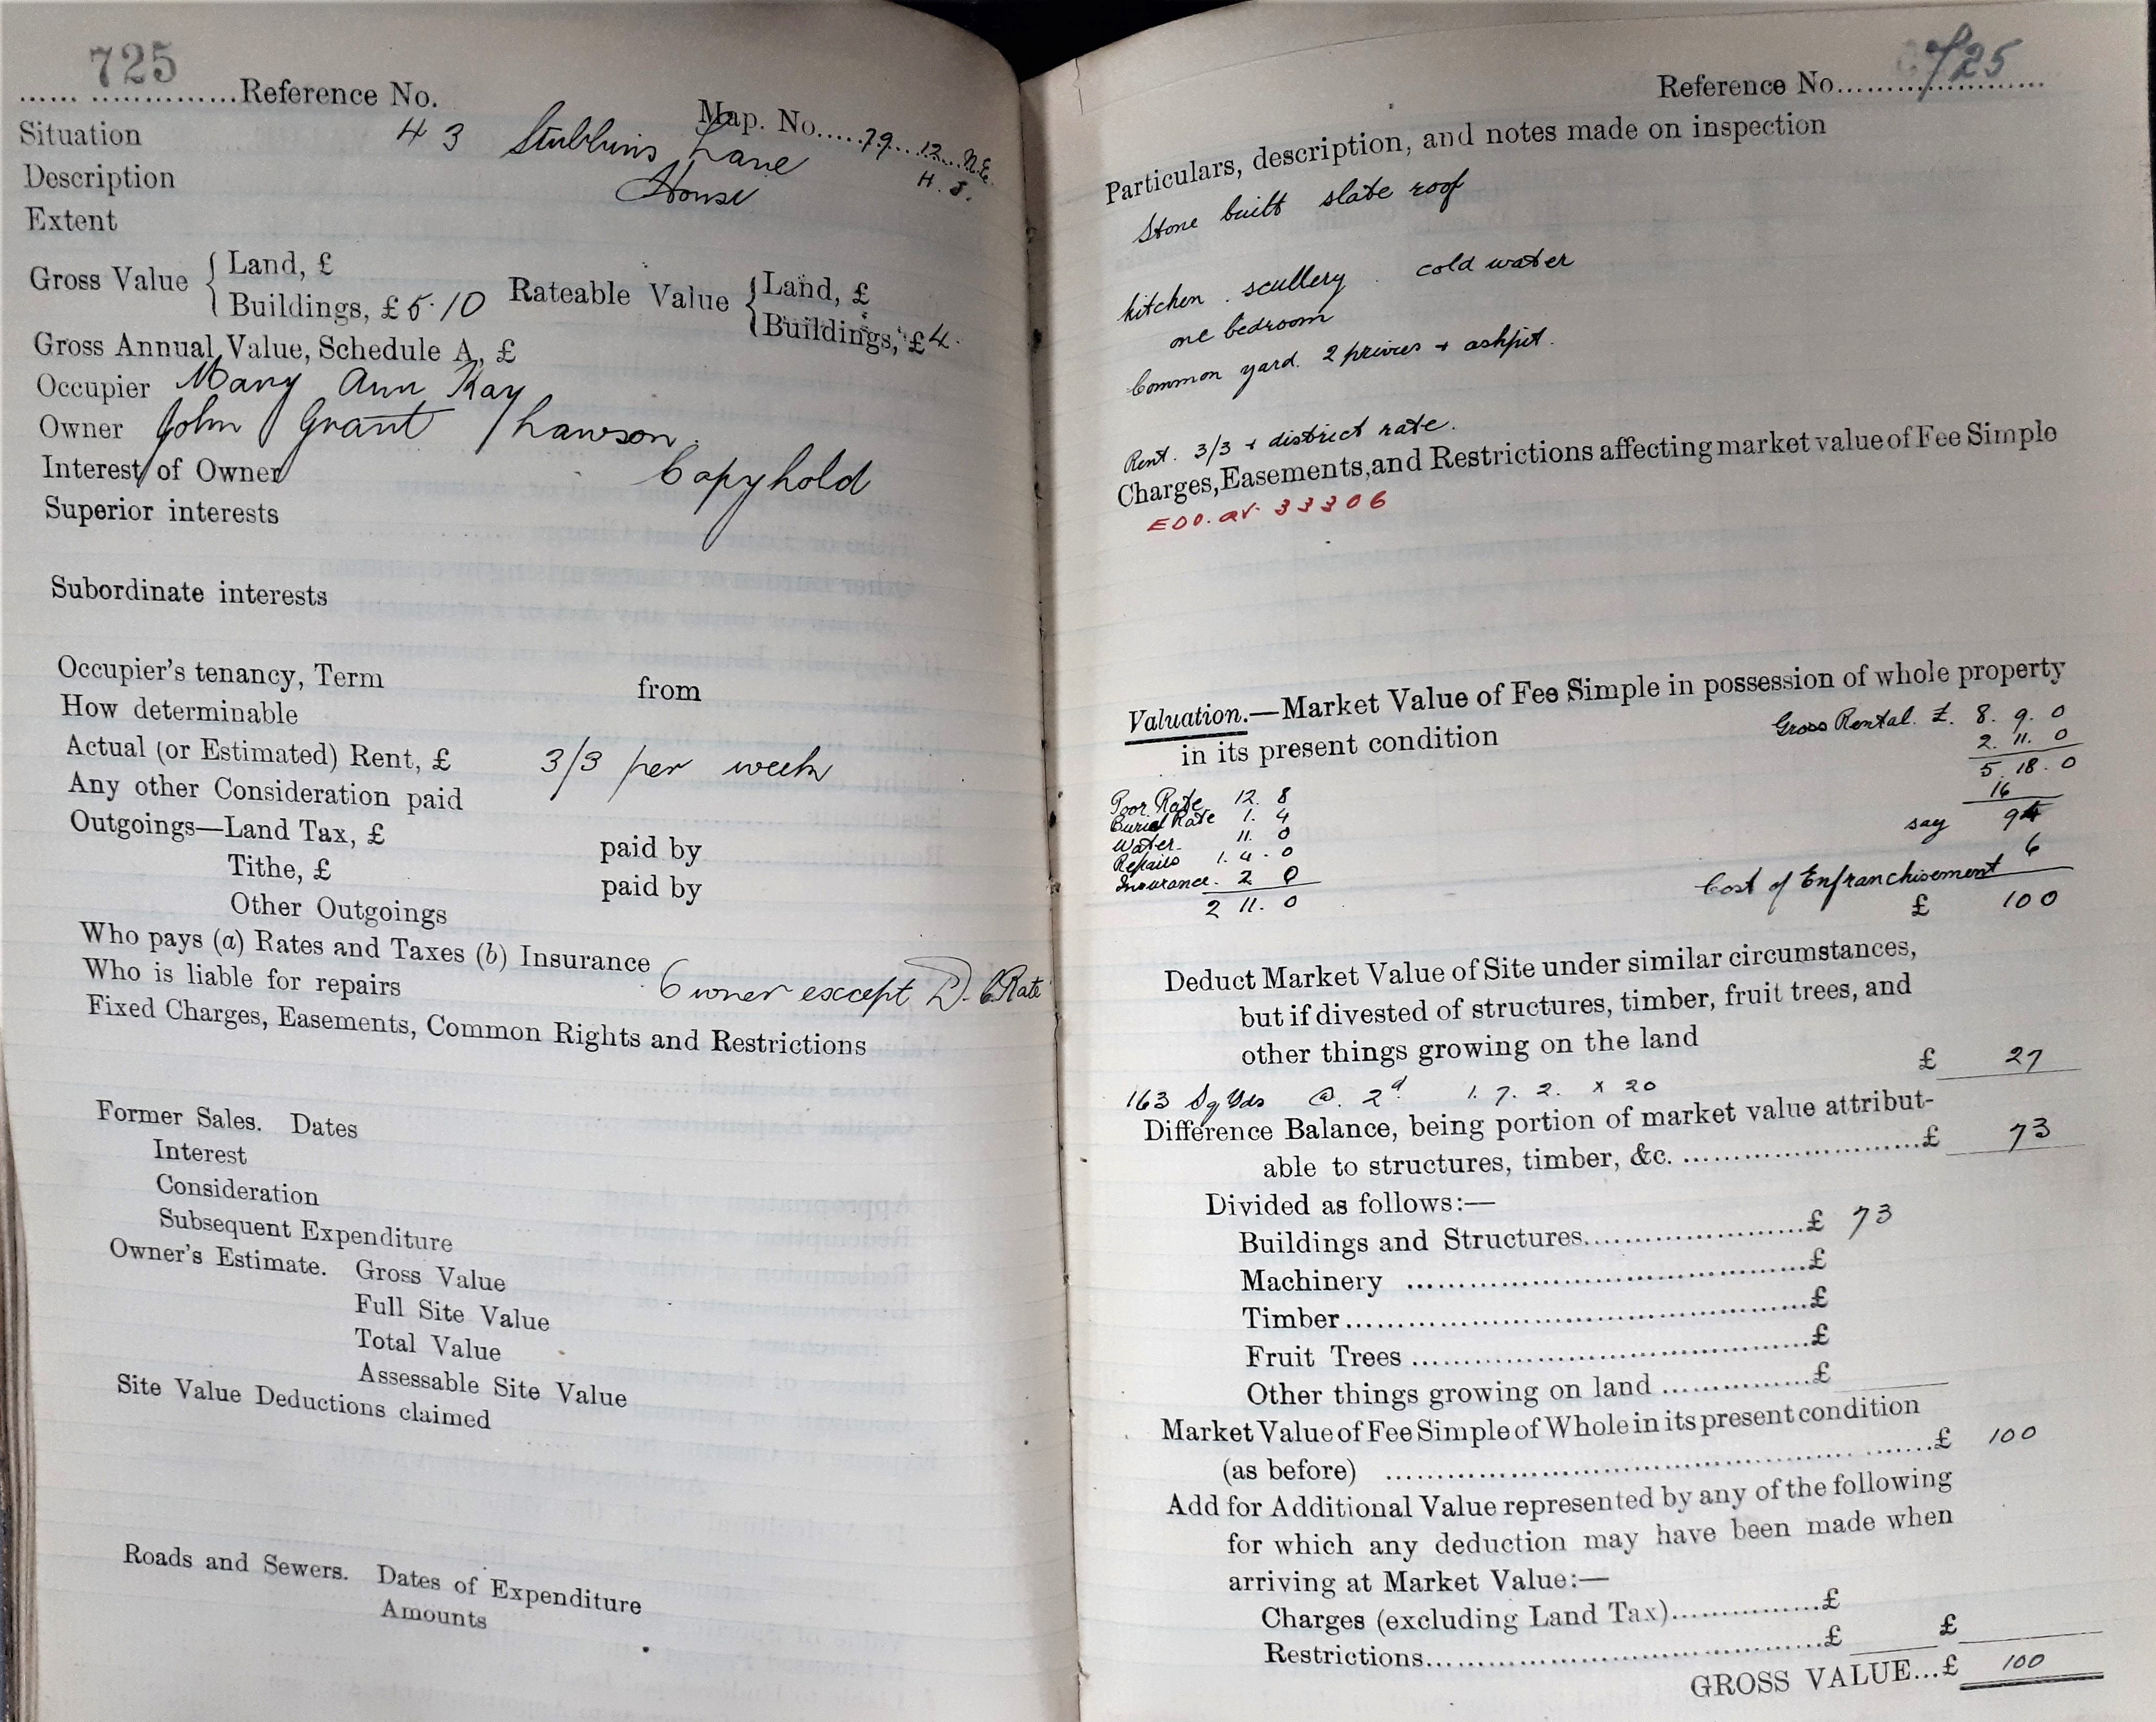 725
...... ...............Reference No.
Map. No.....79...12...N.E.
H. S.
Situation 43 Stubbins Lane
Description House
Extent
Gross Value { Land, £
Buildings, £ 5.10
Rateable Value { Land, £
Buildings, £ 4.
Gross Annual Value, Schedule A, £
Occupier Mary Ann Kay
Owner John Grant Lawson.
Interest of Owner Copyhold
Superior interests
Subordinate interests
Occupier's tenancy, Term from
How determinable
Actual (or Estimated) Rent, £ 3/3 per week
Any other Consideration paid
Outgoings—Land Tax, £ paid by
Tithe, £ paid by
Other Outgoings
Who pays (a) Rates and Taxes (b) Insurance
Who is liable for repairs Owner except D. C Rate
Fixed Charges, Easements, Common Rights and Restrictions
Former Sales. Dates
Interest
Consideration
Subsequent Expenditure
Owner's Estimate. Gross Value
Full Site Value
Total Value
Assessable Site Value
Site Value Deductions claimed
Roads and Sewers. Dates of Expenditure
Amounts
Reference No........725
Particulars, description, and notes made on inspection
Stone built slate roof
kitchen . scullery . cold water
one bedroom
Common yard. 2 privies + ashpit.
Rent. 3/3 + district rate.
Charges, Easements, and Restrictions affecting market value of Fee Simple
33306
Valuation.—Market Value of Fee Simple in possession of whole property
in its present condition
Gross Rental. £. 8. 9. 0
2. 11. 0
5. 18. 0
16
say 94
6
Cost of Enfranchisement
£ 100
Poor Rate 12. 8
Burial Rate 1. 4
Water 11. 0
Repairs 1. 4. 0
Insurance. 2 0
2 11. 0
Deduct Market Value of Site under similar circumstances,
but if divested of structures, timber, fruit trees, and
other things growing on the land
£ 27
163 Sq Yds @. 2d 1. 7. 2. x 20
Difference Balance, being portion of market value attribut-
able to structures, timber, &c. ..............................£ 73
Divided as follows:—
Buildings and Structures.........................£ 73
Machinery .............................................£
Timber....................................................£
Fruit Trees .............................................£
Other things growing on land ................£
Market Value of Fee Simple of Whole in its present condition
(as before) ........................................................£ 100
Add for Additional Value represented by any of the following
for which any deduction may have been made when
arriving at Market Value:—
Charges (excluding Land Tax)................£
Restrictions.............................................£ £
GROSS VALUE...£ 100